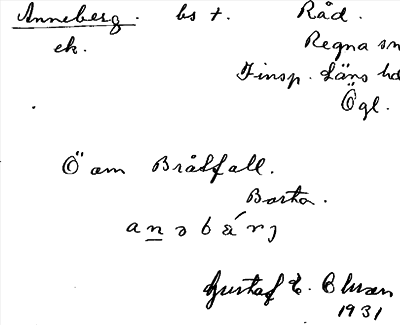 Anneberg. bs t. Råd.
ek. Regna sn
Finsp. Läns hd
Ögl.
Ö am Bråtfall.
Borta.
anəbärj
Gustaf E. Olsson
1931